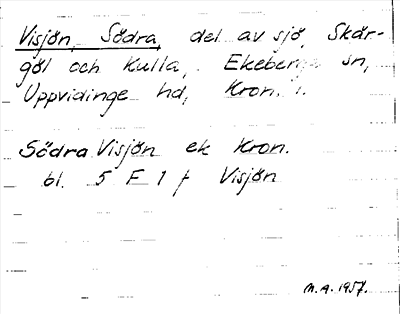 Visjön, Södra, del av sjö, Skär-
göl och Kulla, Ekeberga sn,
Uppvidinge hd, Kron. l.
Södra Visjön ek Kron.
bl. 5 F 1 f Visjön
M.A. 1957.